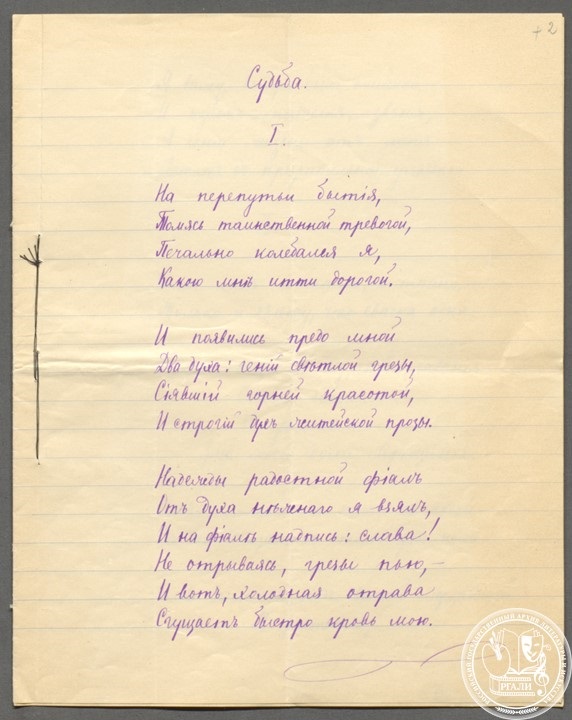 +2
Судьба.
I.
На перепутьи бытія,
Томясь таинственной тревогой,
Печально колебался я,
Какою мнѣ итти дорогой.
И появились предо мной
Два духа: геній свѣтлой грезы,
Сіявшій горней красотой,
И строгій духъ житейской прозы.
Надежды радостной фіалъ
Отъ духа нѣжнаго я взялъ,
И на фіалѣ надпись: слава!
Не отрываясь, грезы пью,—
И вотъ, холодная отрава
Сгущаетъ быстро кровь мою.
РОССИЙСКИЙ ГОСУДАРСТВЕННЫЙ АРХИВ ЛИТЕРАТУРЫ И ИСКУССТВА
РГАЛИ